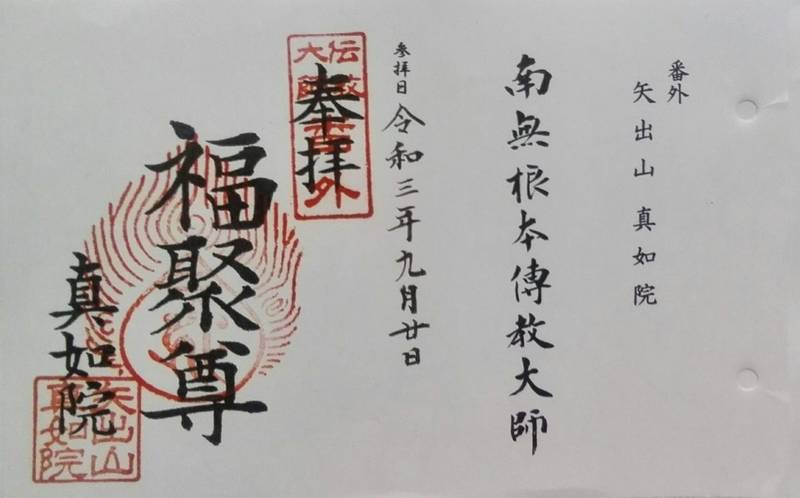 番外
矢出山 真如院
南無根本傳教大師
参拝日 令和三年九月廿日
奉拝
伝教大師
番外
福聚尊
真如院
矢出山
真如院